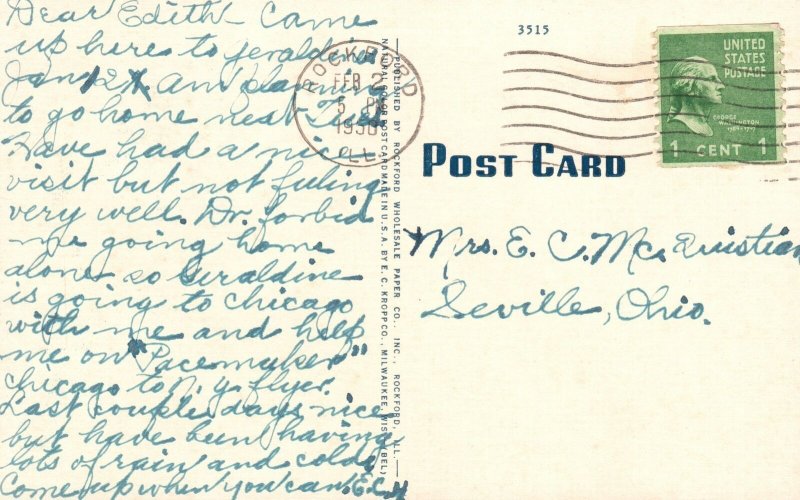 Dear Edith - Came
up here to Jeraldine's
Jan 12. Am planning
to go home next Tues.
Have had a nice
visit but not feeling
very well. Dr. forbid
me going home
alone so Geraldine
is going to Chicago
with me and help
me on "Pacemaker"
Chicago to N. Y. flyer.
Last couple days nice
but have been having
lots of rain and cold.
Come up when you can. E.C.
PUBLISHED BY ROCKFORD WHOLESALE PAPER CO., INC., ROCKFORD, ILL.
NATURAL COLOR POST CARD MADE IN U.S.A. BY E. C. KROPP CO., MILWAUKEE, WIS.
ROCKFORD
FEB 2
5 PM
ILL.
3515
UNITED
STATES
POSTAGE
GEORGE
WASHINGTON
1 CENT 1
POST CARD
Mrs. E. C. McQuistian
Seville, Ohio.